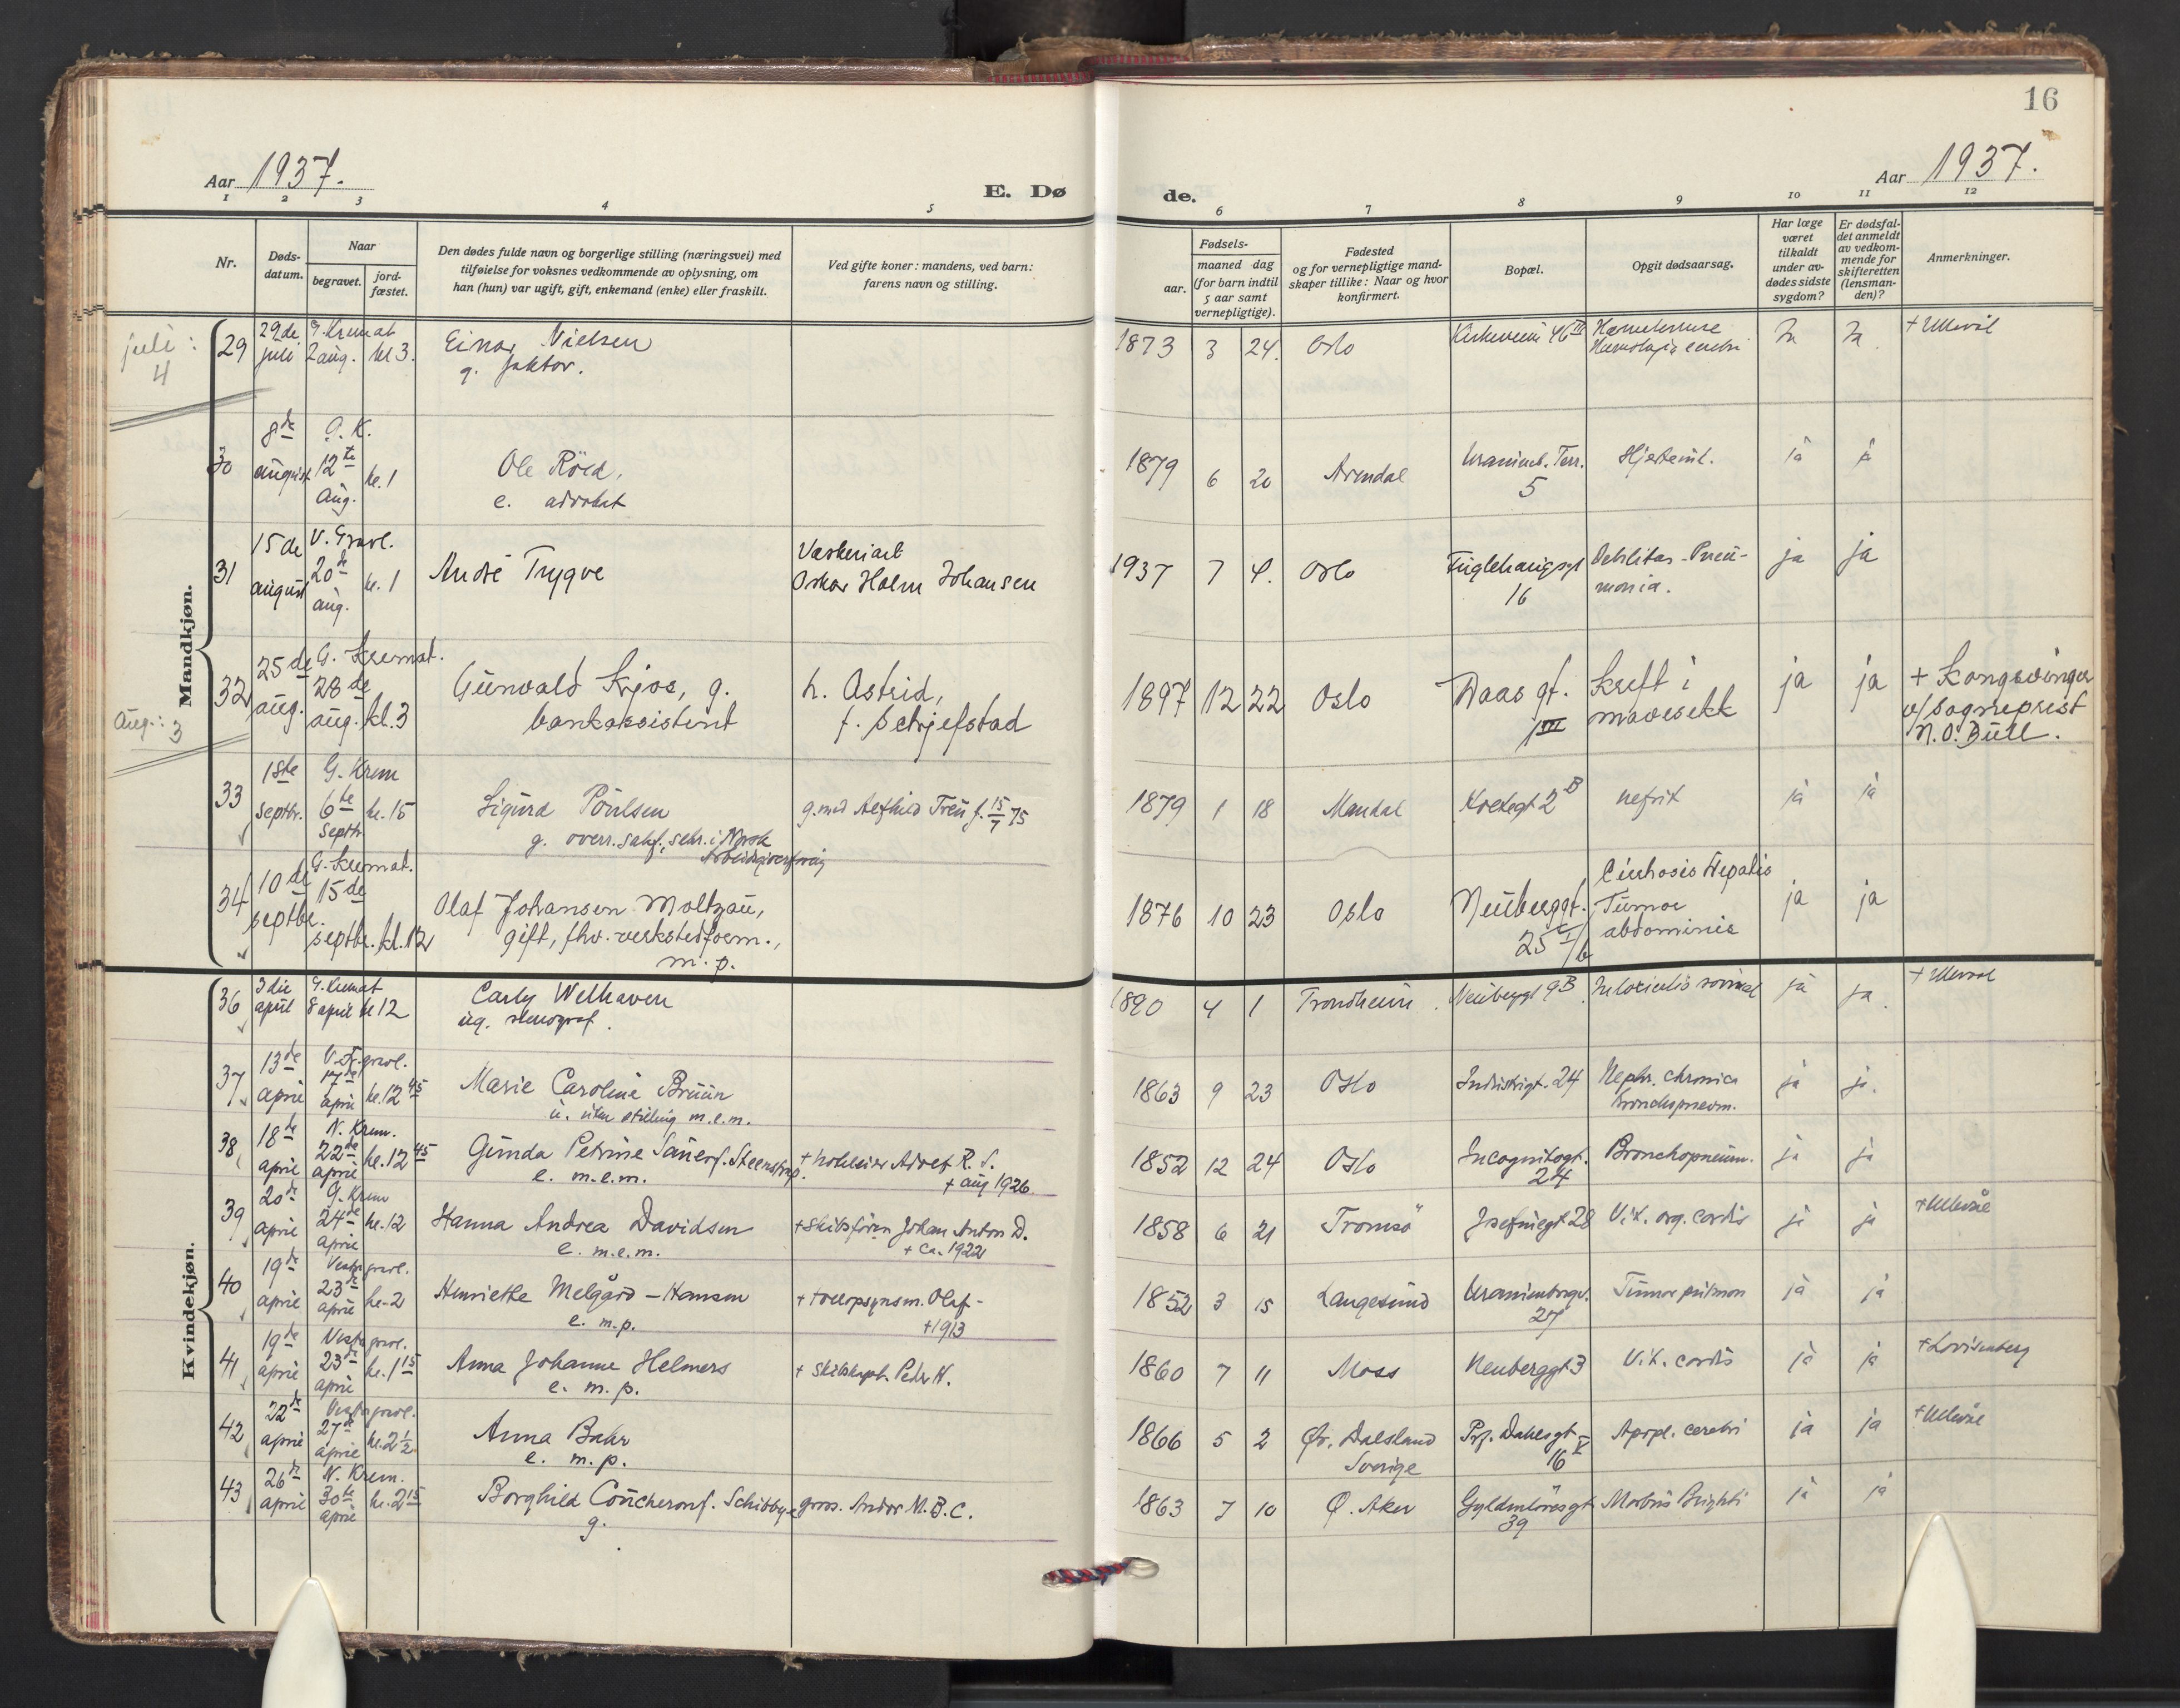 16
Aar 1937.
E. Dø
de.
Aar 1937.
1 2 3 4 5 6 7 8 9 10 11 12
Nr.
Døds-
datum.
Naar
begravet.
jord-
fæstet.
Den dødes fulde navn og borgerlige stilling (næringsvei) med
tilføielse for voksnes vedkommende av oplysning, om
han (hun) var ugift, gift, enkemand (enke) eller fraskilt.
Ved gifte koner: mandens, ved barn:
farens navn og stilling.
Fødsels-
aar.
maaned dag
(for barn indtil
5 aar samt
vernepligtige).
Fødested
og for vernepligtige mand-
skaper tillike: Naar og hvor
konfirmert.
Bopæl.
Opgit dødsaarsag.
Har læge
været
tilkaldt
under av-
dødes sidste
sygdom?
Er dødsfal-
det anmeldt
av vedkom-
mende for
skifteretten
(lensman-
den)?
Anmerkninger.
Mandkjøn.
juli:
4
29 29de juli G. Kremat 2 aug. kl 3. Einar Nielsen
g. faktor.
1873 3 24. Oslo Kirkeveien 46 III Ja Ja + Ullevål
30 8de august G. K. 12te Aug. kl. 1 Ole Röed,
e. advokat
1879 6 20 Arendal Uranienb. Terr. 5 ja ja
31 15de august V. Gravl. 20de aug. kl. 1 André Trygve
Oskar Holm Johansen
1937 7 4. Oslo Fuglehaugsgt 16 Debilitas - Pneu-
monia. ja ja
aug.: 3
32 25de aug. G. Kremat. 28de aug. kl. 3 Gunvald Kjos, g.
bankassistent
h. Astrid,
f. Schjefstad
1897 12 22 Oslo Daas gt. 1 III Kreft i
mavesekk ja ja + Kongsvinger
v/ sogneprest
N. O. Bull.
33 1ste septbr. G. Krem 6te septbr kl. 15 Sigurd Poulsen
g. overr. sakf., sekr. i Norsk
Arbeidsgiverforening
g. med f. 15/7 75
1879 1 18 Mandal 2 B nefrit ja ja
34 10de septbr. G. Kremat. 15de septbr. kl. 12 Olaf Johansen Moltzau,
gift, fhv. verkstedform.,
m. p.
1876 10 23 Oslo Neuberggt. 25 I/b Cirrhosis Hepatis
Tumor
abdominis ja ja
Kvindekjøn.
36 3die april G. Kremat 8 april kl 12 Carly Welhaven
ug. stenograf.
1890 4 1 Trondheim Neuberggt 9 B ja ja. + Ullevål
37 13de april Vestre gravl. 17de april kl. 12 45 Marie Caroline Bruun
u. uten stilling m.e.m.
1863 9 23 Oslo Industrigt. 24 Nephr. chronica
bronchopneum. ja ja.
38 18de april N. Krem. 22de april kl. 12 45 Gunda Petrine Sauer f. Steenstrup.
e. m.e.m.
+ hotelier Adolf R. S.
+ aug 1926
1852 12 24 Oslo Incognitogt. 24 Bronchopneum. ja ja
39 20de april G. Krem 24de april kl. 12 Hanna Andrea Davidsen
e. m.e.m.
+ Skibsfören Johan Anton D.
+ ca. 1922
1858 6 21 Tromsö Josefinegt 28 Vit. org. cordis ja ja + Ullevål
40 19de april Vestre gravl. 23de april kl. 2 Henriette Melgård - Hansen
e. m. p.
+ tollopsynsm. Olaf -
+ 1913
1852 3 15 Langesund Uranienborgv. 27 Tumor pulmon ja ja
41 19de april Vestre gravl. 23de april kl. 1 15 Anna Johanne Helmers
e. m. p.
+ Skibskapt. Peder H.
1860 7 11 Moss Neuberggt 3 Vit. cordis ja ja + Lovisenberg
42 22de april Vestre gravl. 27de april kl. 2 1/2 Anna Bahr
e. m. p.
1866 5 2 Dalsland
Sverige Prf. Dahlsgt 16 V Apopl. cerebri ja ja + Ullevål
43 26de april N. Krem. 30te april kl. 2 15 Borghild Coucheron f. Schibbye
g.
gross. Andor M. B. C.
1863 7 10 Ø. Aker Gyldenlövesgt 39 Morbus Brighti ja ja